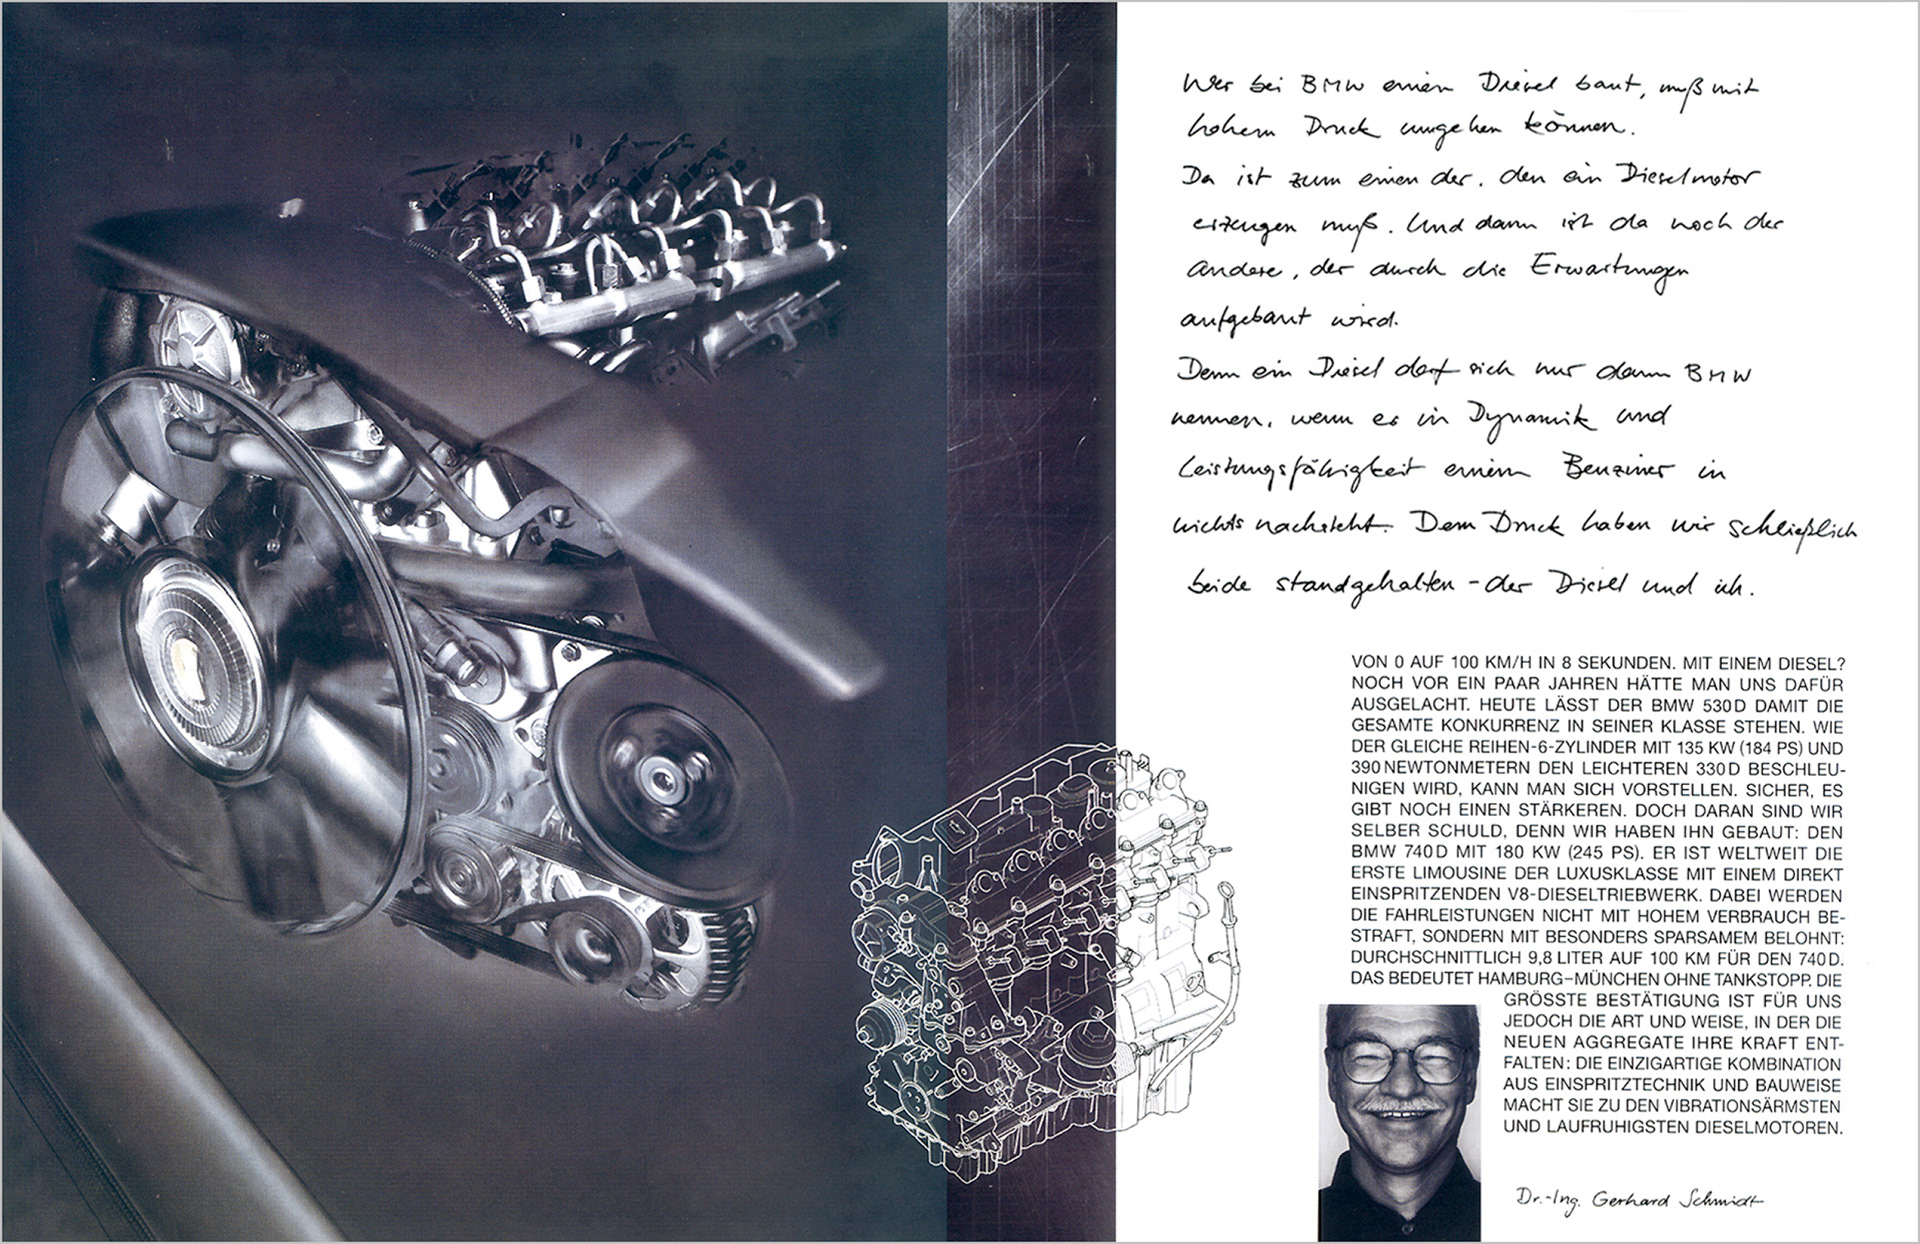 Wer bei BMW einen Diesel baut, muß mit
hohem Druck umgehen können.
Da ist zum einen der, den ein Dieselmotor
erzeugen muß. Und dann ist da noch der
andere, der durch die Erwartungen
aufgebaut wird.
Denn ein Diesel darf sich nur dann BMW
nennen, wenn er in Dynamik und
Leistungsfähigkeit einem Benziner in
nichts nachsteht. Dem Druck haben wir schließlich
beide standgehalten - der Diesel und ich.
VON 0 AUF 100 KM/H IN 8 SEKUNDEN. MIT EINEM DIESEL?
NOCH VOR EIN PAAR JAHREN HÄTTE MAN UNS DAFÜR
AUSGELACHT. HEUTE LÄSST DER BMW 530D DAMIT DIE
GESAMTE KONKURRENZ IN SEINER KLASSE STEHEN. WIE
DER GLEICHE REIHEN-6-ZYLINDER MIT 135 KW (184 PS) UND
390 NEWTONMETERN DEN LEICHTEREN 330D BESCHLEU-
NIGEN WIRD, KANN MAN SICH VORSTELLEN. SICHER, ES
GIBT NOCH EINEN STÄRKEREN. DOCH DARAN SIND WIR
SELBER SCHULD, DENN WIR HABEN IHN GEBAUT: DEN
BMW 740D MIT 180 KW (245 PS). ER IST WELTWEIT DIE
ERSTE LIMOUSINE DER LUXUSKLASSE MIT EINEM DIREKT
EINSPRITZENDEN V8-DIESELTRIEBWERK. DABEI WERDEN
DIE FAHRLEISTUNGEN NICHT MIT HOHEM VERBRAUCH BE-
STRAFT, SONDERN MIT BESONDERS SPARSAMEM BELOHNT:
DURCHSCHNITTLICH 9,8 LITER AUF 100 KM FÜR DEN 740D.
DAS BEDEUTET HAMBURG–MÜNCHEN OHNE TANKSTOPP. DIE
GRÖSSTE BESTÄTIGUNG IST FÜR UNS
JEDOCH DIE ART UND WEISE, IN DER DIE
NEUEN AGGREGATE IHRE KRAFT ENT-
FALTEN: DIE EINZIGARTIGE KOMBINATION
AUS EINSPRITZTECHNIK UND BAUWEISE
MACHT SIE ZU DEN VIBRATIONSÄRMSTEN
UND LAUFRUHIGSTEN DIESELMOTOREN.
Dr.-Ing. Gerhard Schmidt